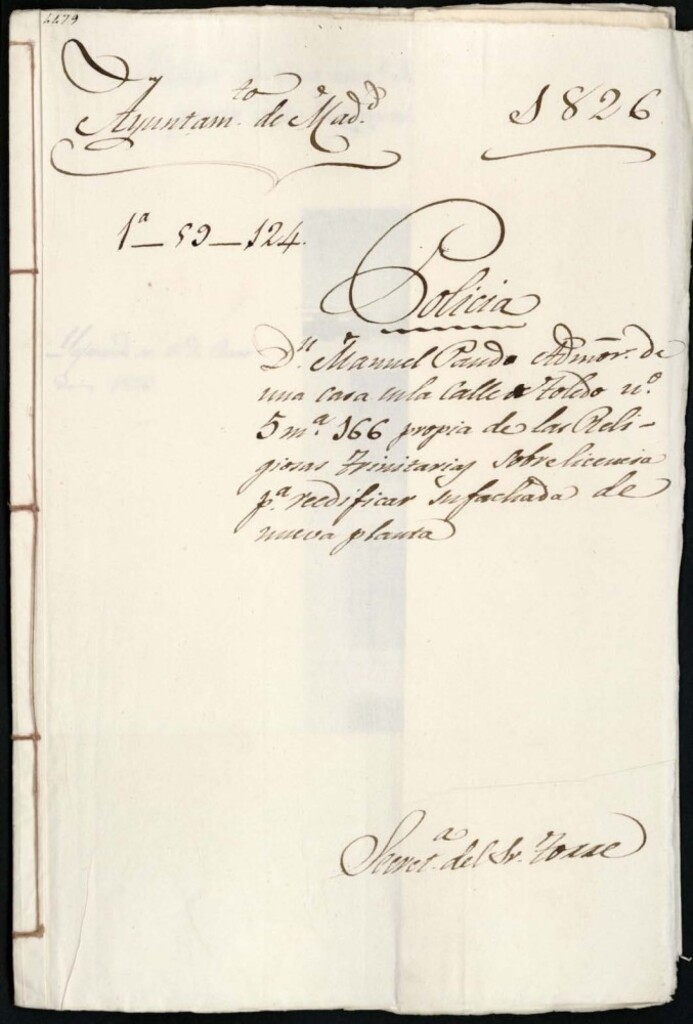 4479
Ayuntam.to de Mad.d
1826
1ª — 59 — 124.
Policia
D.n Manuel Pando Admõr. de
una casa en la Calle de Toledo n.º
5 m.ª 166 propia de las Reli-
giosas Trinitarias sobre licencia
p.ª reedificar su fachada de
nueva planta
Secret.ª del Sr. Torre